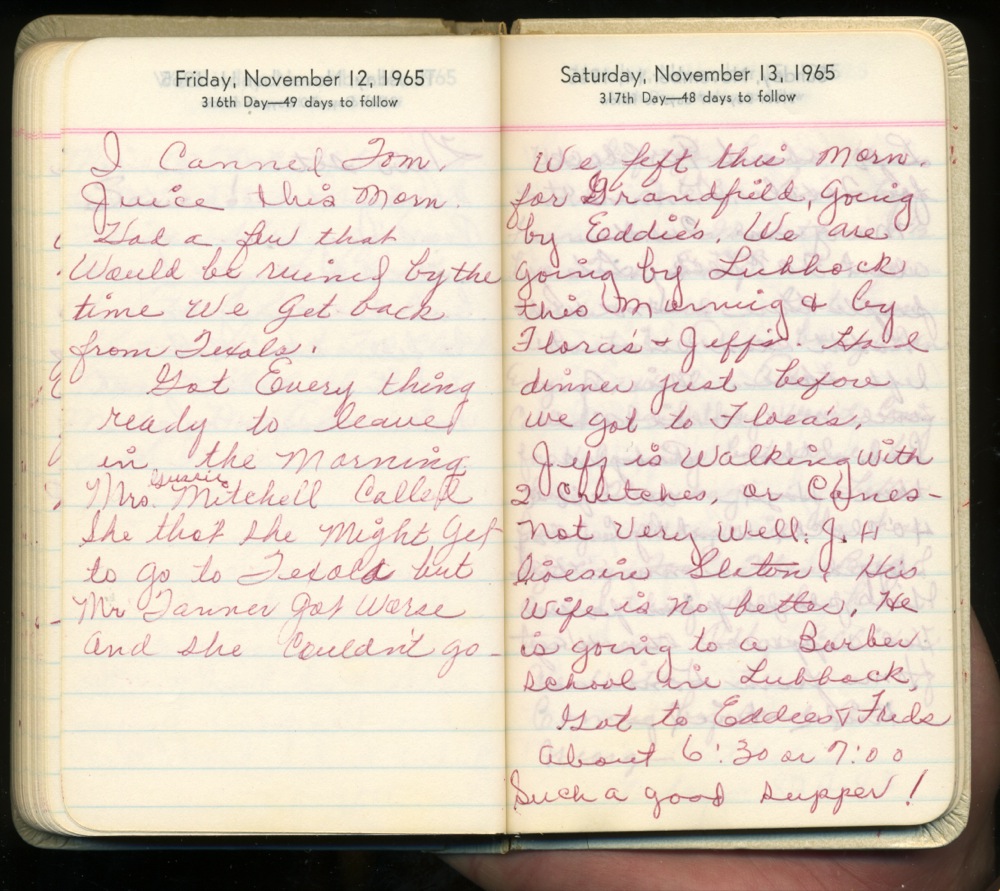 Friday, November 12, 1965
316th Day—49 days to follow
I Canned Tom.
Juice this Morn.
Had a few that
Would be ruined by the
time We Get back
from Texola.
Got Every thing
ready to leave
in the Morning
Mrs. Mitchell Called
She that she Might Get
to go to Texola but
Mr Tanner Got Worse
And she Couldn't go -
Saturday, November 13, 1965
317th Day—48 days to follow
We left this Morn.
for Grandfield, Going
by Eddie's. We are
going by Lubbock
this Morning & by
Flora's + Jeff's. Had
dinner just before
we got to Flora's.
Jeff is Walking With
2 Crutches, or Canes -
Not Very Well. J. H
lives in Slaton. His
Wife is no better. He
is going to a Barber
School in Lubbock.
Got to Eddies & Freds
About 6:30 or 7:00
Such a good supper!